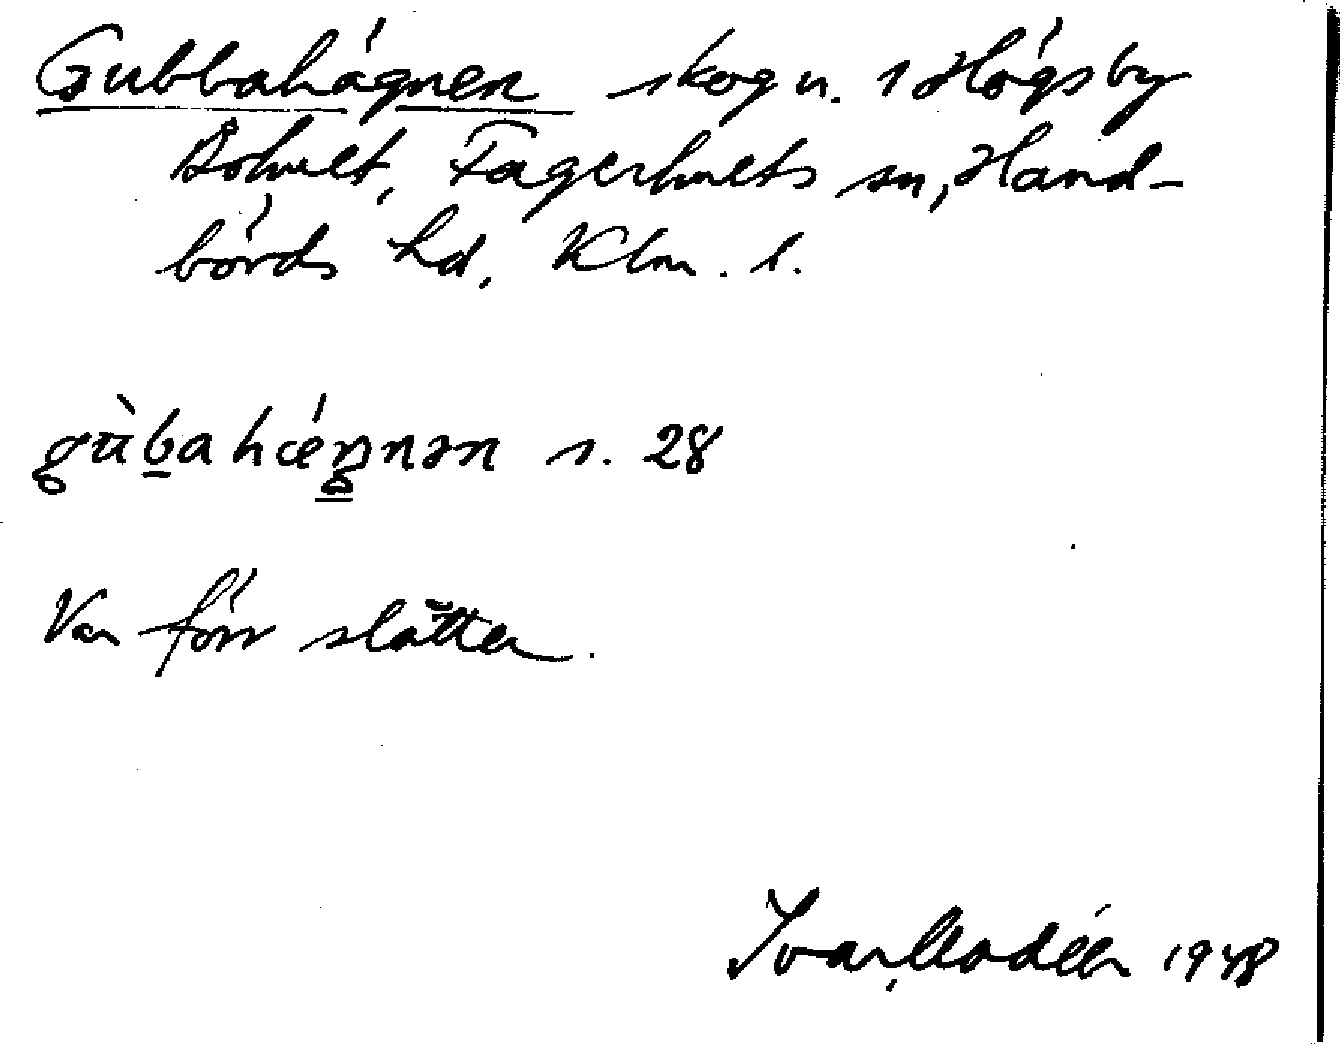 Gubbahägnen skog n. i Högsby
Bohult, Fagerhults sn, Hand-
börds hd, Klm. l.
gùb̲ahǽŋnən s. 28
Var förr slåtter.
Ivar Modéer 1948